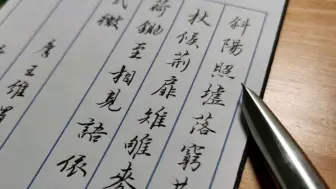 斜陽照墟落窮
杖候荊扉雉雊麥
荷鋤至相見語依
式微
唐王維